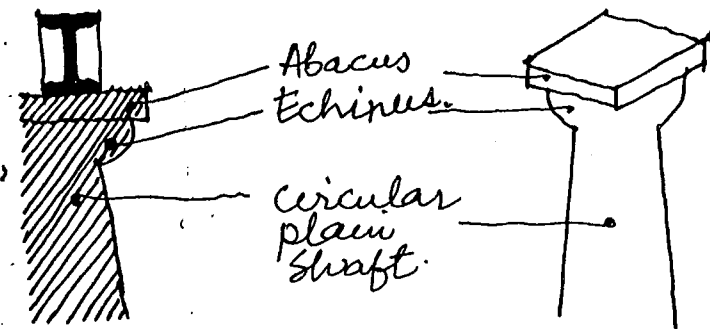 Abacus
Echinus.
circular
plain
shaft.